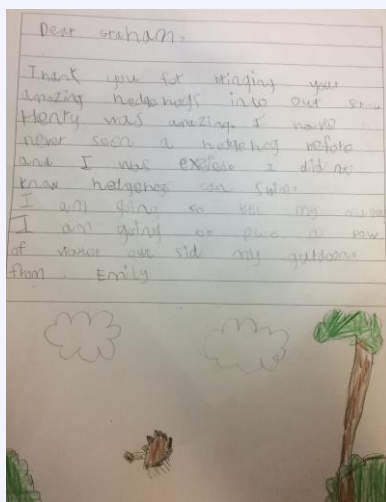 Dear Graham.
Thank you for bringing your
amazing hedgehogs into out
Henry was amazing. I have
never seen a hedgehog before
and I was I did
know hedgehogs can swim.
I am going to my
I am going to a bow
of water out sid my
from Emily